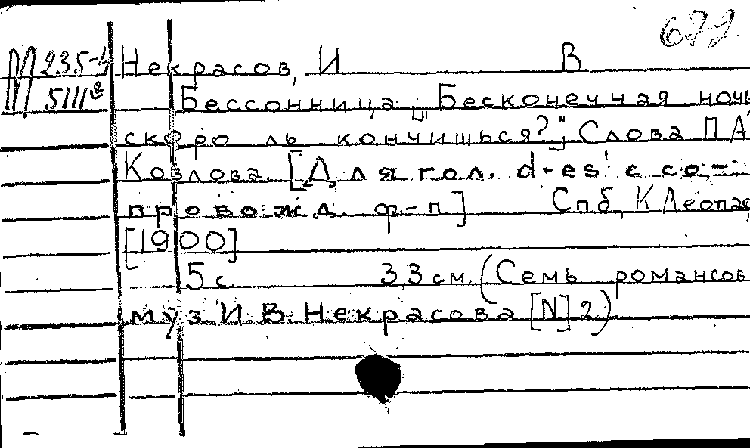 677.
М 235-4 Некрасов, И В
5111² Бессонница „Бесконечная ночь
скоро ль кончишься?"; Слова П А
Козлова. [Для гол. d-es' с со-
провожд. ф-п] Спб, К Леопас
[1900]
5 с 33 см. (Семь романсов
муз И. В. Некрасова [N] 2)